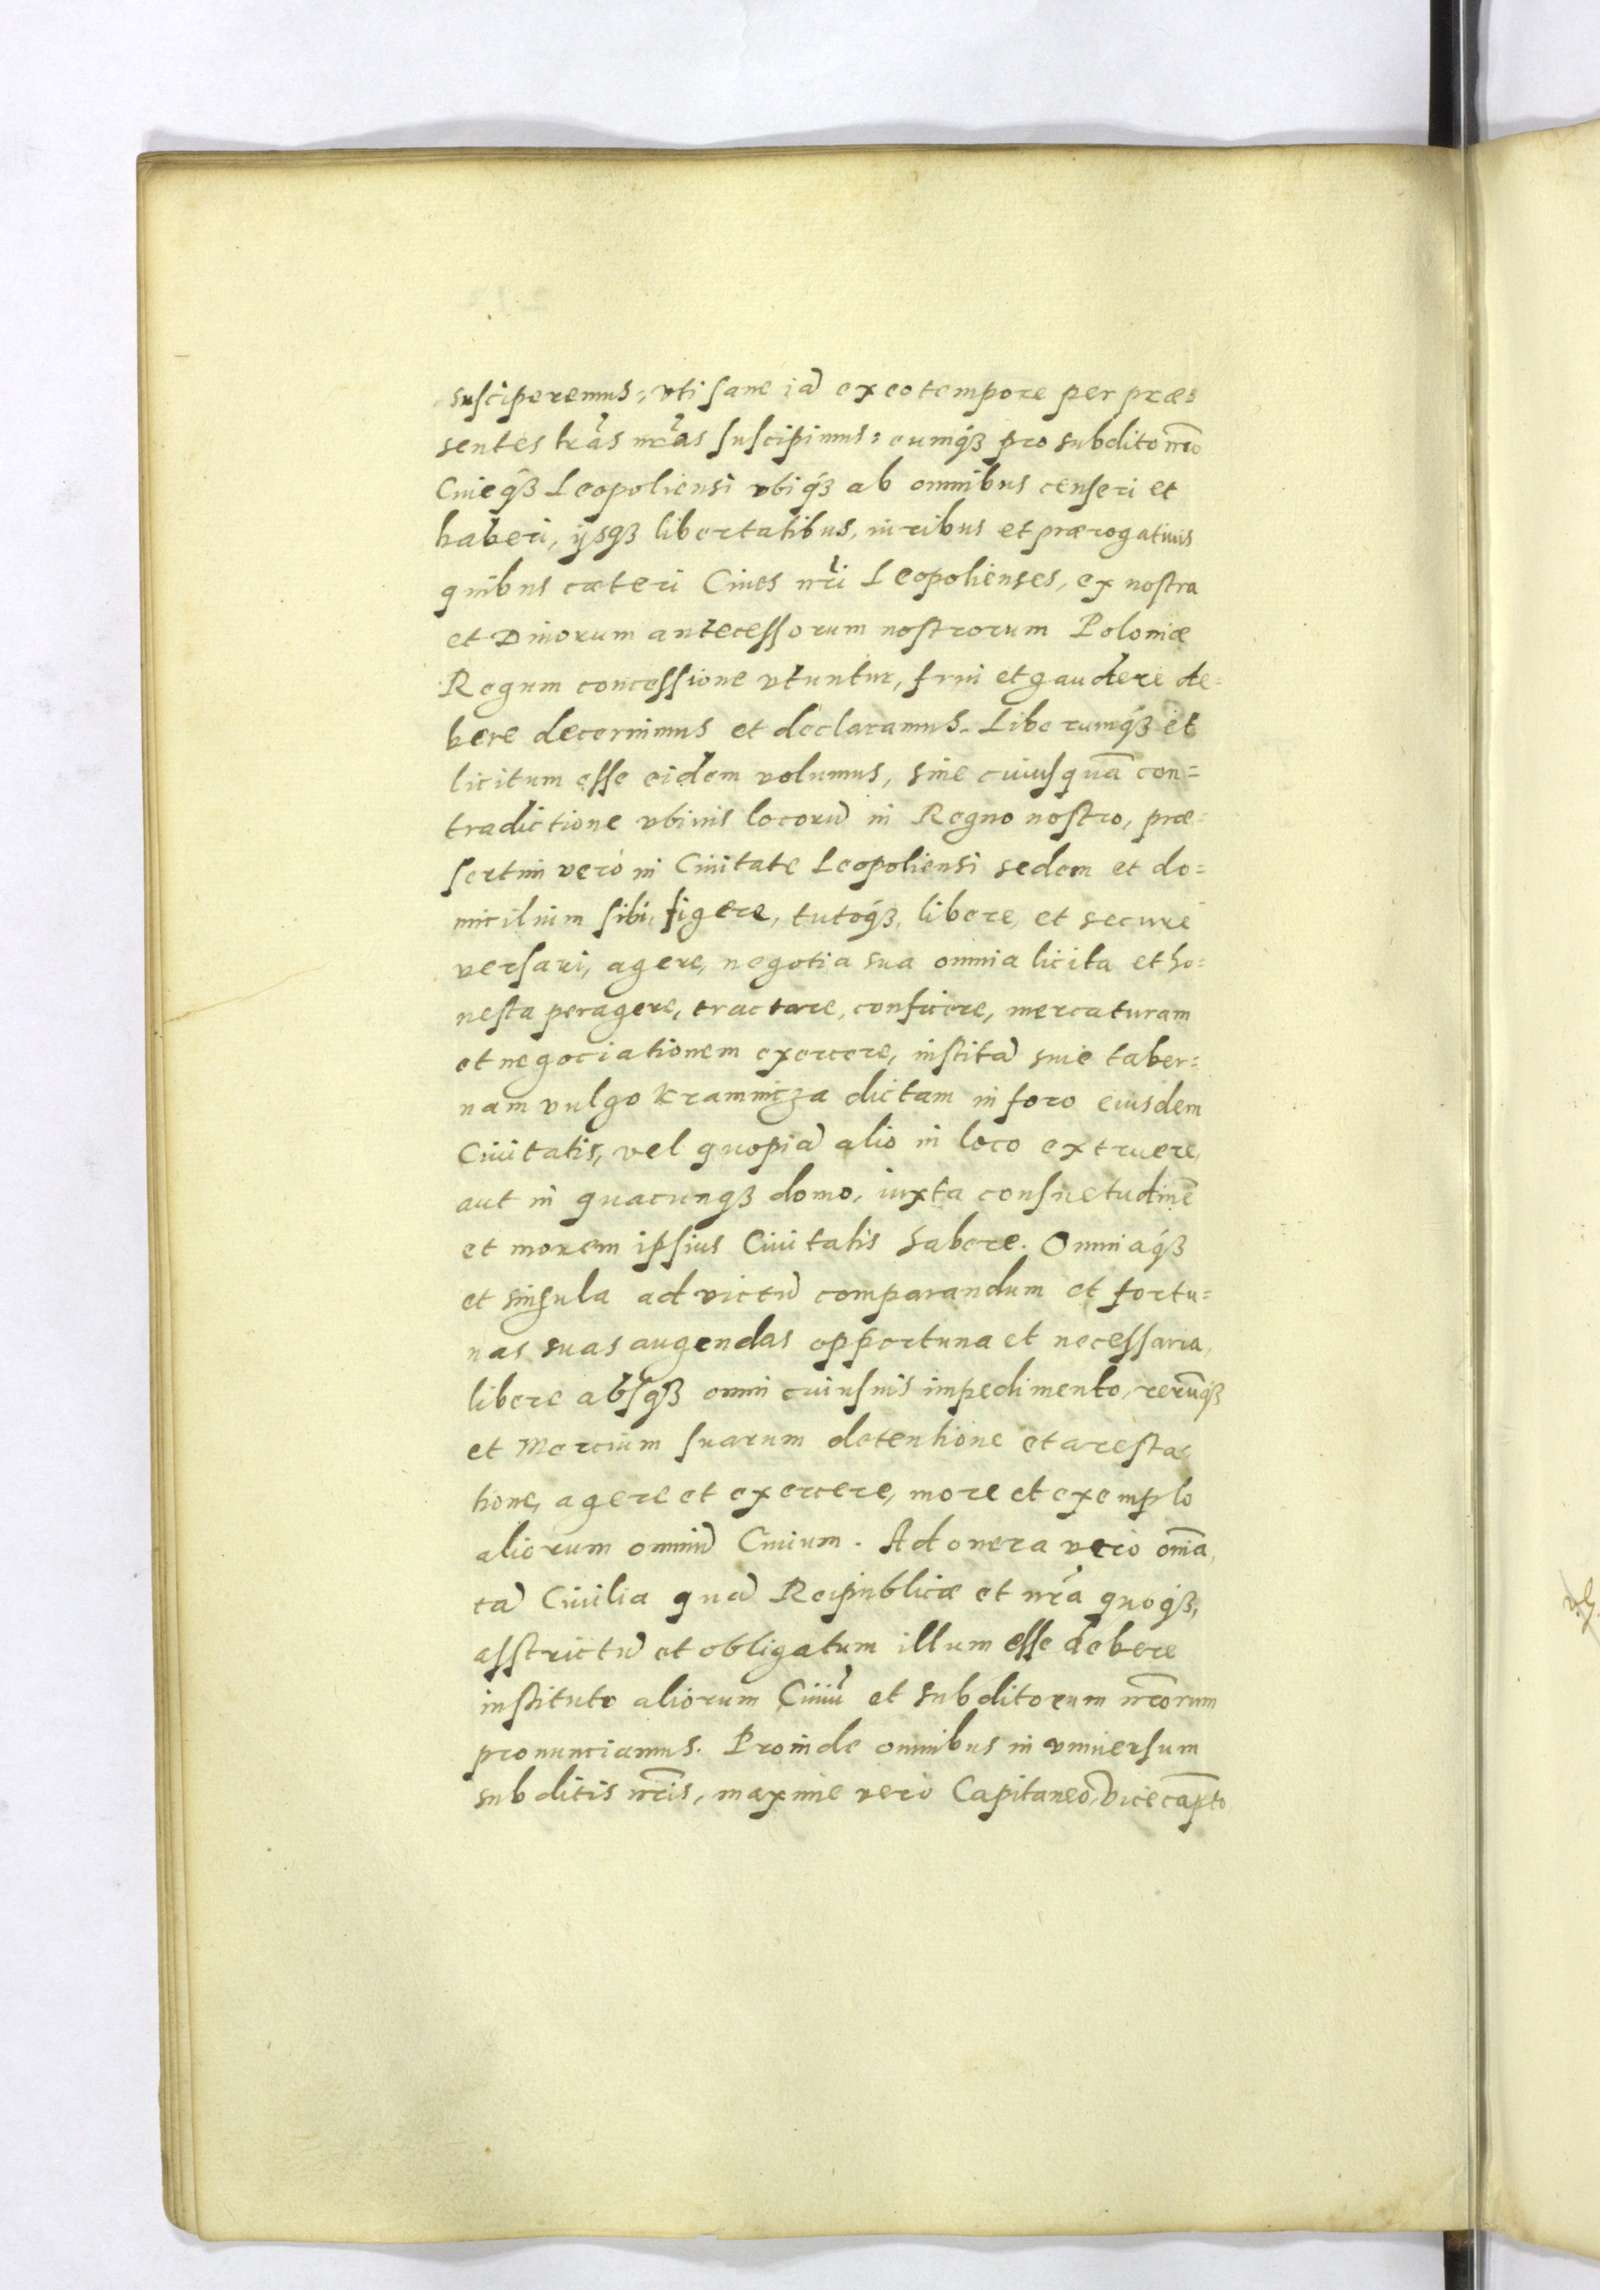 susciperemus; vti sane iã ex eo tempore per præ=
sentes lr̃as nr̃as suscipimus: eumq́ꝫ pro subdito nr̃o
Ciueq́ꝫ Leopoliensi vbiq́ꝫ ab omnibus censeri et
haberi, ijsqꝫ libertatibus, iuribus et prærogatiuis
quibus cæteri Ciues nr̃i Leopolienses, ex nostra
et Diuorum antecessorum nostrorum Poloniæ
Regum concessione vtuntur, frui et gaudere de=
bere decernimus et declaramus. Liberumq́ꝫ et
licitum esse eidem volumus, sine cuiusquã con=
tradictione vbiuis locorũ in Regno nostro, præ=
sertim verò in Ciuitate Leopoliensi sedem et do=
micilium sibi figere, tutoq́ꝫ, libere, et secure
versari, agere, negotia sua omnia licita et ho=
nesta peragere, tractare, conficere, mercaturam
et negociationem exercere, institã siue taber=
nam vulgo kramnicza dictam in foro eiusdem
Ciuitatis, vel quopiã alio in loco extruere,
aut in quacunqꝫ domo, iuxta consuetudinẽ
et morem ipsius Ciuitatis habere. Omniaq́ꝫ
et singula ad victũ comparandum et fortu=
nas suas augendas opportuna et necessaria,
libere absqꝫ omni cuiusuis impedimento, rerũqꝫ
et Mercium suarum detentione et aresta=
tione, agere et exercere, more et exemplo
aliorum omniũ Ciuium. Ad onera vero om̃ia,
tã Ciuilia quã Reipublicæ et nr̃a quoqꝫ,
asstrictũ et obligatum illum esse debere
instituto aliorum Ciuiũ et subditorum nr̃orum
pronunciamus. Proinde omnibus in vniuersum
subditis nr̃is, maxime vero Capitaneo, Vicecap̃to